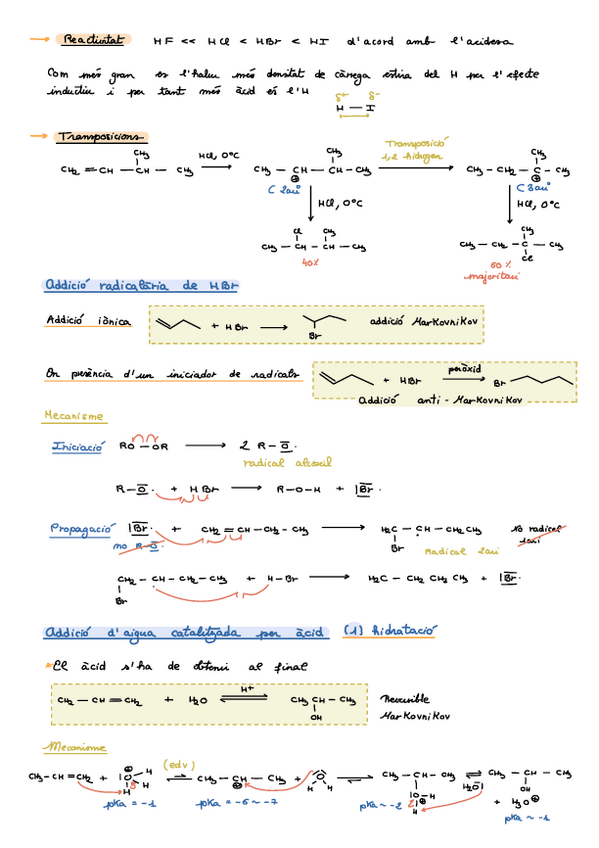 → Reactivitat HF << HCl < HBr < HI d'acord amb l'acidesa
Com més gran es l'halur més densitat de càrrega estira del H per l'efecte
inductiu i per tant més àcid és l'H
δ+ δ-
H — I
→ Transposicions
CH₂ = CH — CH — CH₃
CH₃
HCl, 0°C
CH₃ — CH — CH — CH₃
CH₃
⊕
C 2ari
Transposició
1,2 hidrogen
CH₃ — CH₂ — C — CH₃
CH₃
⊕
C 3ari
HCl, 0°C
HCl, 0°C
Cl CH₃
CH₃ — CH — CH — CH₃
40%
CH₃
CH₃ — CH₂ — C — CH₃
Cl
60 %
majoritari
Addició radicalària de HBr
Addició iònica
+ HBr → Br addició Markovnikov
En presència d'un iniciador de radicals
+ HBr peròxid → Br
Addició anti - Markovnikov
Mecanisme
Iniciació RO — OR → 2 R — O·
radical alcoxil
R — O· + H Br → R — O — H + |Br·
Propagació |Br· + CH₂ = CH — CH₂ — CH₃ → H₂C — CH — CH₂CH₃
no R — O·
Br
Radical 2ari
No radical
1ari
CH₂ — CH — CH₂ — CH₃ + H — Br → H₂C — CH₂ CH₂ CH₃ + |Br·
Br
Addició d'aigua catalitzada per àcid (1) hidratació
El àcid s'ha de obtenir al final
CH₃ — CH = CH₂ + H₂O ⇌ CH₃ — CH — CH₃
H⁺
OH
Reversible
Markovnikov
Mecanisme
(edv)
CH₃ — CH = CH₂ + |O — H ⇌ CH₃ — CH — CH₃ + O ⇌ CH₃ — CH — CH₃ ⇌ CH₃ — CH — CH₃
H₂O|
OH
+ H₃O⊕
pKa = -1 pKa = -6 ~ -7 pKa ~ -2 pKa ~ -1